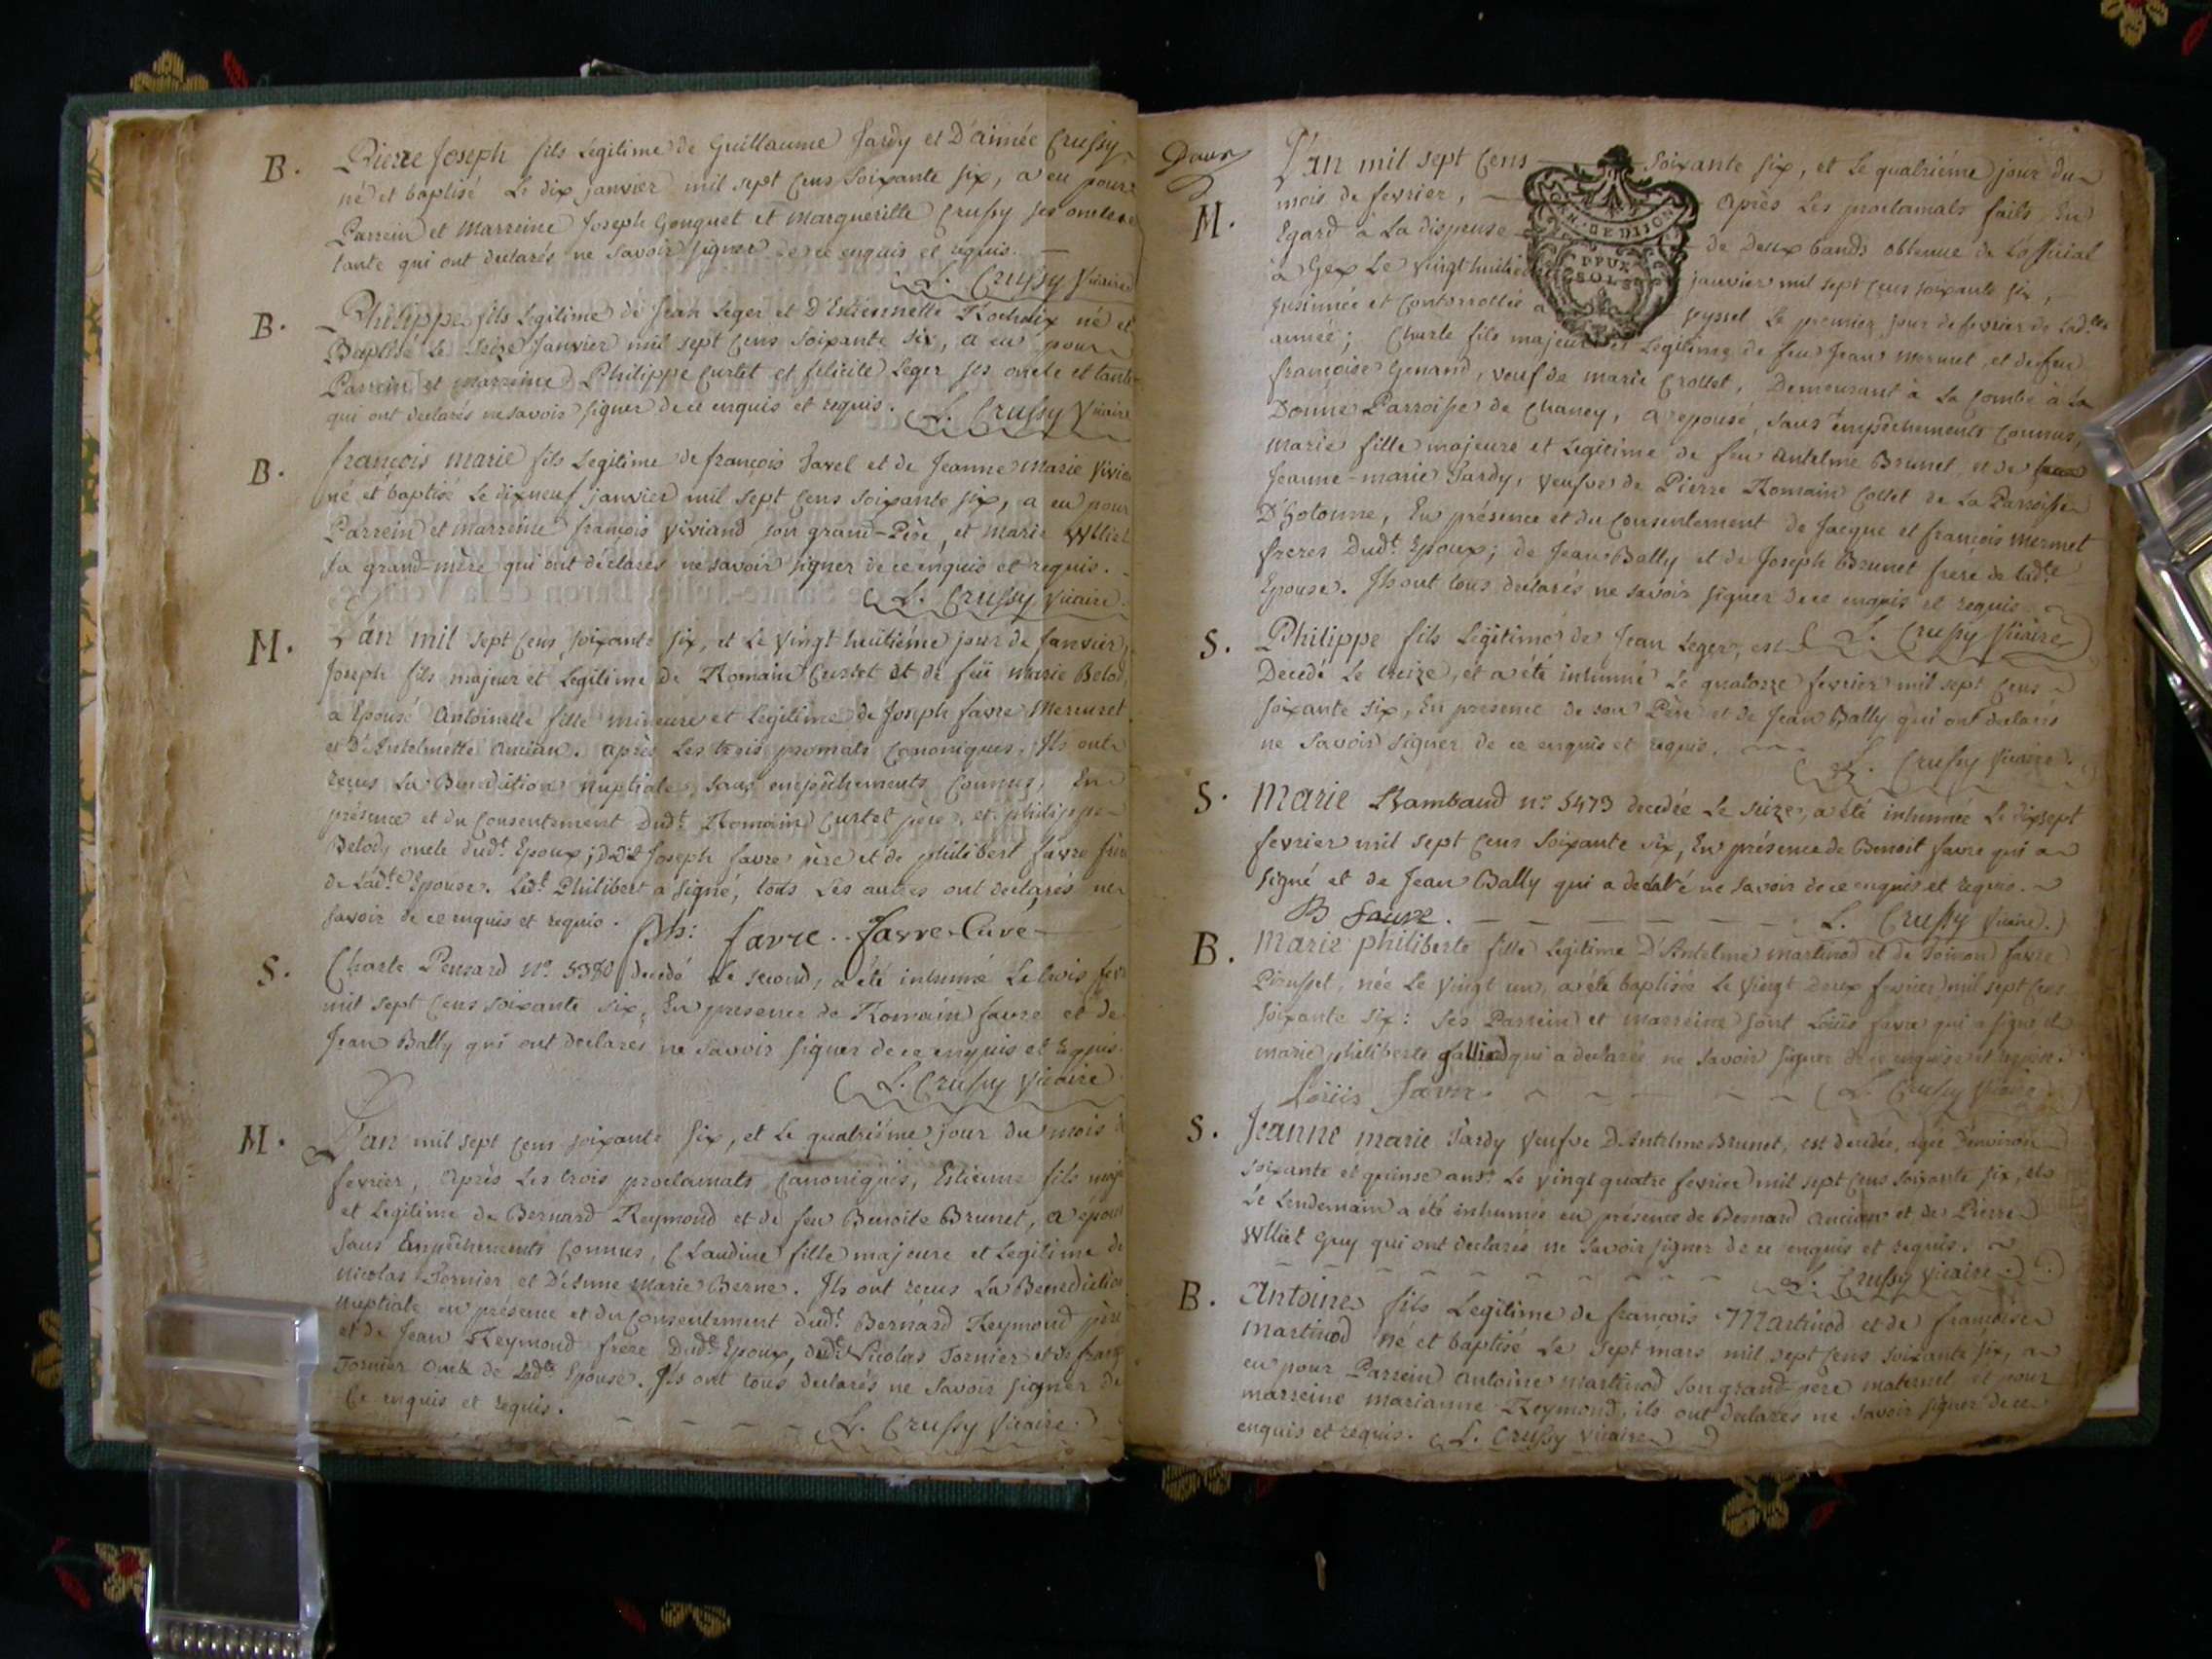 B. Pierre Joseph fils Legitime de Guillaume Tardy et D'aimée Crussy
né et baptisé Le dix janvier mil sept Cens Soixante six, a eu pour
Parrein et Marreine Joseph Gonguet et Margueritte Crussy ses oncle et
tante qui ont declarés ne Savoir signer de ce enquis et requis.
L. Crussy Vicaire
B. Philippe fils Legitime de Jean Leger et D'Estiennette Rochaix né et
Baptisé Le Seize Janvier mil sept Cens Soixante six, a eu pour
Parrein et Marreine Philippe Curtet et felicité Leger ses oncle et tante
qui ont declarés ne savoir signer de ce enquis et requis. L. Crussy Vicaire
B. françois marie fils Legitime de françois Javel et de Jeanne Marie
né et baptisé Le dixneuf janvier mil sept Cens soixante six, a eu pour
Parrein et marreine françois Viviand son grand-Père, et Marie Wlliet
sa grand-mère qui ont déclarés ne savoir signer de ce enquis et requis.
L. Crussy Vicaire
M. L'an mil sept Cens soixante six, et Le Vingt huitiéme jour de Janvier,
Joseph fils majeur et Legitime de Romain Curtet et de feüe Marie Belod,
a Epousé Antoinette fille mineure et Legitime de Joseph favre Mercuret
et D'Antelmette Ancian. après Les trois promats Canoniques. Ils ont
reçus La Benediction Nuptiale, sans empêchements Connus, En
présence et du Consentement Dudt. Romain Curtet père, et philippe
Belod, oncle dudt. Epoux; Joseph favre père et de philibert favre frère
de Ladte Epouse. Ledt. Philibert a signé, tous Les autres ont declarés ne
savoir de ce enquis et requis. Ph: favre. favre Curé
S. Charle Pensard No. 5380 decedé Le second, a été inhumé Le trois fevr
mil sept Cens soixante six, En presence de Romain favre et de
Jean Bally qui ont declarés ne savoir signer de ce enquis et requis.
L. Crussy Vicaire
M. L'an mil sept Cens soixante six, et Le quatriéme jour du mois de
fevrier, Après Les trois proclamats Canoniques, Estienne fils maj
et Legitime de Bernard Reymond et de feu Benoite Brunet, a épousé
sans Empêchements Connus, Claudine fille majeure et Legitime de
Nicolas Tornier et D'Anne Marie Berne. Ils ont reçus La Benediction
Nuptiale en présence et du Consentement dudt. Bernard Reymond père
et de Jean Reymond frère Dudt Epoux, dudt Nicolas Tornier et de
Tornier Oncle de Ladte Epouse. Ils ont tous declarés ne savoir signer de
Ce enquis et requis.
L. Crussy Vicaire
Deux
M. L'an mil sept Cens Soixante six, et Le quatriéme jour du
mois de fevrier, Après Les proclamats faits En
Egard à La dispense de deux bands obtenue de L'official
à Gex Le Vingt huitiéme janvier mil sept Cens soixante six,
Insinuée et Controrollée a Seyssel Le premier jour de fevrier de Ladte
année; Charle fils majeur et Legitime de feu Jean Mermet et de feu
françoise Genand, Veuf de Marie Crollet, Demeurant à La Combe à La
Donne Parroisse de Chaney, a epousé, sans empêchements Connus,
Marie fille majeure et Legitime de feu Antelme Brunet et de
Jeanne-marie Tardy, Veufve de Pierre Romain Collet de La Parroisse
D'hotonne, En présence et du Consentement de Jacque et françois Mermet
freres Dudt. Epoux; de Jean Bally et de Joseph Brunet frere de Ladte
Epouse. Ils ont tous declarés ne savoir signer de ce enquis et requis
S. Philippe fils Légitime de Jean Leger, est L. Crussy Vicaire
Decedé Le treize, et a été inhumé Le quatorze fevrier mil sept Cens
soixante six, En presence de son Père et de Jean Bally qui ont declarés
ne savoir signer de ce enquis et requis.
L. Crussy Vicaire
S. Marie Rambaud no. 5473 decedée Le seize, a été inhumée Le dixsept
fevrier mil sept Cens soixante six, En présence de Benoit favre qui a
signé et de Jean Bally qui a declaré ne savoir de ce enquis et requis.
B Favre. L. Crussy Vicaire.
B. Marie philiberte fille Legitime D'Antelme Martinod et de Toinon favre
née Le Vingt un, a été baptisée Le Vingt Deux fevrier mil sept Cens
soixante six: Ses Parrein et marreine sont Loüis favre qui a signé et
marie philiberte qui a declarée ne savoir signer de ce enquise et requise.
Loüis Favre. L. Crussy Vicaire
S. Jeanne marie Tardy Veufve D'Antelme Brunet, est decedée, agée D'environ
soixante et quinse ans Le Vingt quatre fevrier mil sept Cens soixante six, et
Le Lendemain a été inhumée en présence de Bernard Ancian et de Pierre
Wlliet Guy qui ont declarés ne savoir signer de ce enquis et requis.
L. Crussy Vicaire
B. Antoine fils Legitime de françois Martinod et de françoise
Martinod né et baptisé Le sept mars mil sept Cens soixante six, a
eu pour Parrein Antoine Martinod son grand-père maternel et pour
marreine marianne Reymond, ils ont declarés ne savoir signer de ce
enquis et requis. L. Crussy Vicaire
GEN. DE DIJON
DEUX
SOLS